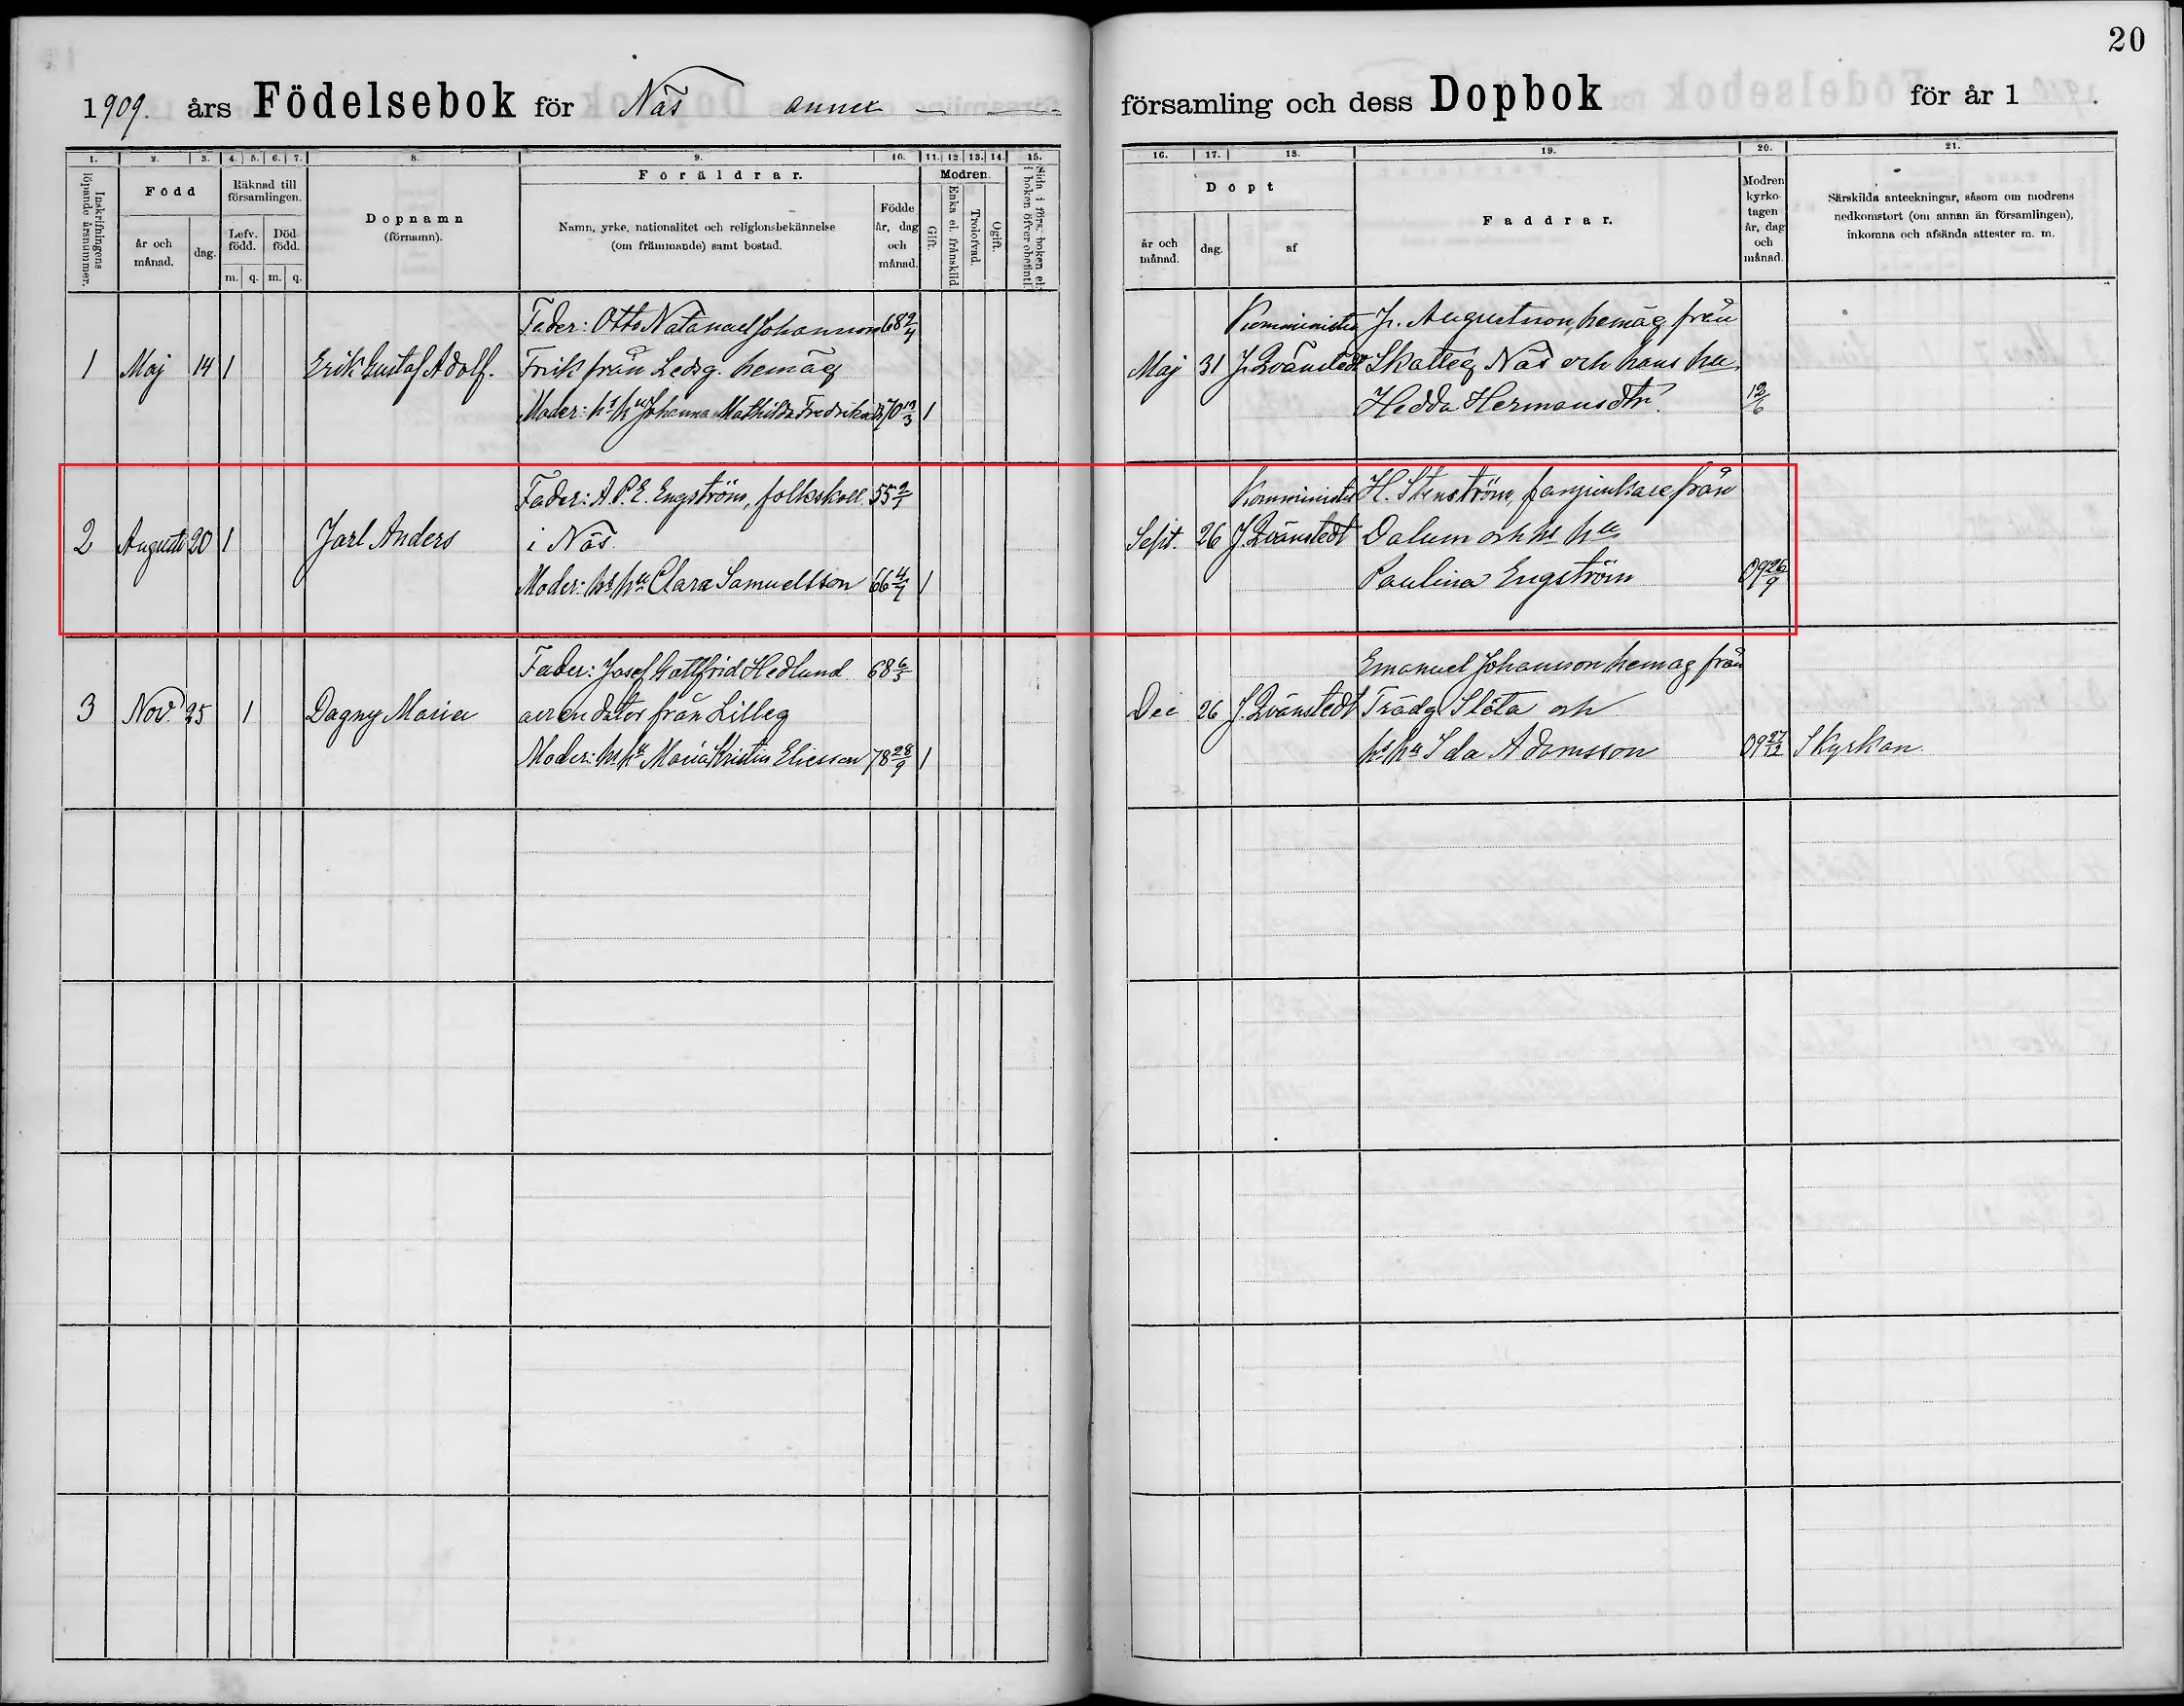 20
1909. års Födelsebok för Näs annex
församling och dess Dopbok för år 1
1. 2. 3. 4. 5. 6. 7. 8. 9. 10. 11. 12. 13. 14. 15.
Inskrifningens löpande årsnummer.
Född
år och månad.
dag.
Räknad till församlingen.
Lefv. född.
Död-född.
m. q. m. q.
Dopnamn
(förnamn).
Föräldrar.
Namn, yrke, nationalitet och religionsbekännelse
(om främmande) samt bostad.
Födde år, dag och månad.
Modren.
Gift.
Enka el. frånskild
Trolofvad.
Ogift.
Sida i förs. boken el. i boken öfver obefintl.
16. 17. 18. 19. 20. 21.
Döpt
år och månad.
dag.
af
Faddrar.
Modren kyrko-tagen år, dag och månad.
Särskilda anteckningar, såsom om modrens
nedkomstort (om annan än församlingen),
inkomna och afsända attester m. m.
Fader: Otto Natanael Johansson 68 9/4
1 Maj 14 1 Erik Gustaf Adolf. från Ledsg. hemäg
Moder: hs hu Johanna Mathilda Fredrika 70 /3 1
Komminister J. Augustsson, hemäg från
Maj 31 J. Qvänstedt Skatteg Näs och hans hu
Hedda Hermansdtr. 12/6
Fader: A. P. E. Engström, folkskoll. 55
2 Augusti 20 1 Jarl Anders i Näs.
Moder: hs hu Clara Samuelsson 66 1
Komminister H. Stenström, fanjunkare från
Sept. 26 J. Qvänstedt Dalum och hs hu
Paulina Engström 09 26/9
Fader: Josef Gottfrid Hedlund 68 6/5
3 Nov. 25 1 Dagny Maria arrendator från Lilleg
Moder: hs hu Maria Kristin Eliesson 78 28/9 1
Emanuel Johansson hemäg från
Dec 26 J. Qvänstedt Trädg Slöta och
hs hu Ida Adamsson 09 27/12 I kyrkan.